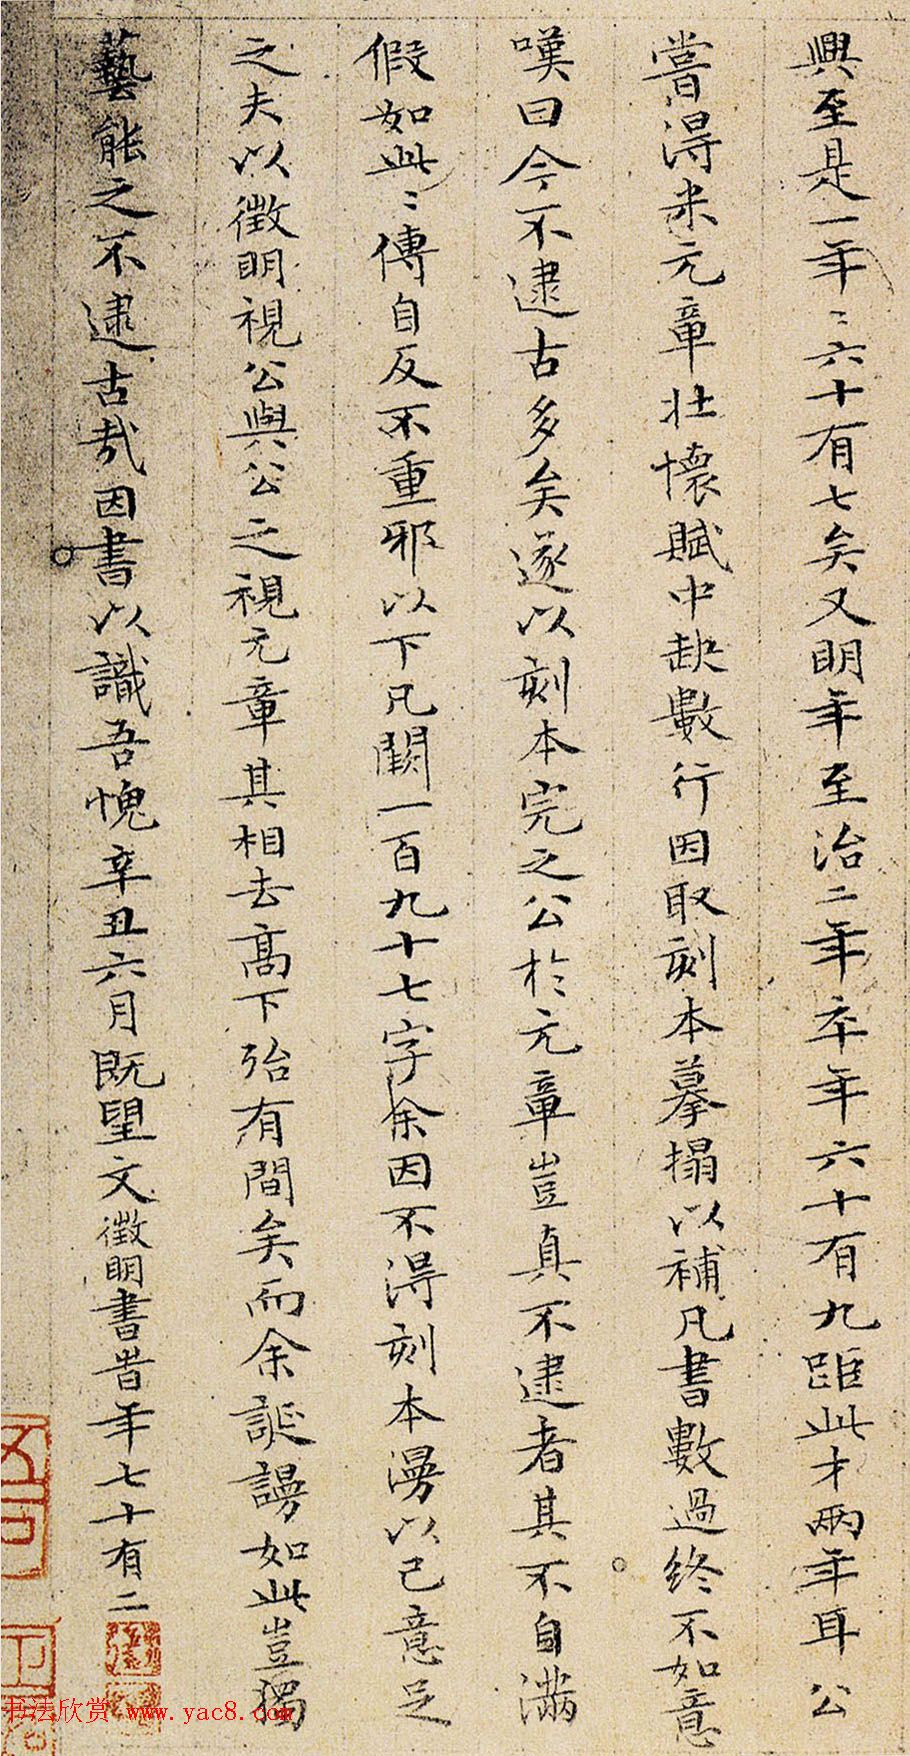 興至是一年〻六十有七矣又明年至治二年卒年六十有九距此才兩年耳公
嘗得米元章壯懷賦中缺數行因取刻本摹搨以補凡書數過終不如意
嘆曰今不逮古多矣遂以刻本完之公於元章豈真不逮者其不自滿
假如此〻傳自反不重邪以下凡闕一百九十七字余因不得刻本漫以己意足
之夫以徵明視公與公之視元章其相去高下殆有間矣而余誕謾如此豈獨
藝能之不逮古哉因書以識吾愧辛丑六月既望文徵明書昔年七十有二
书法欣赏 www.yac8.com